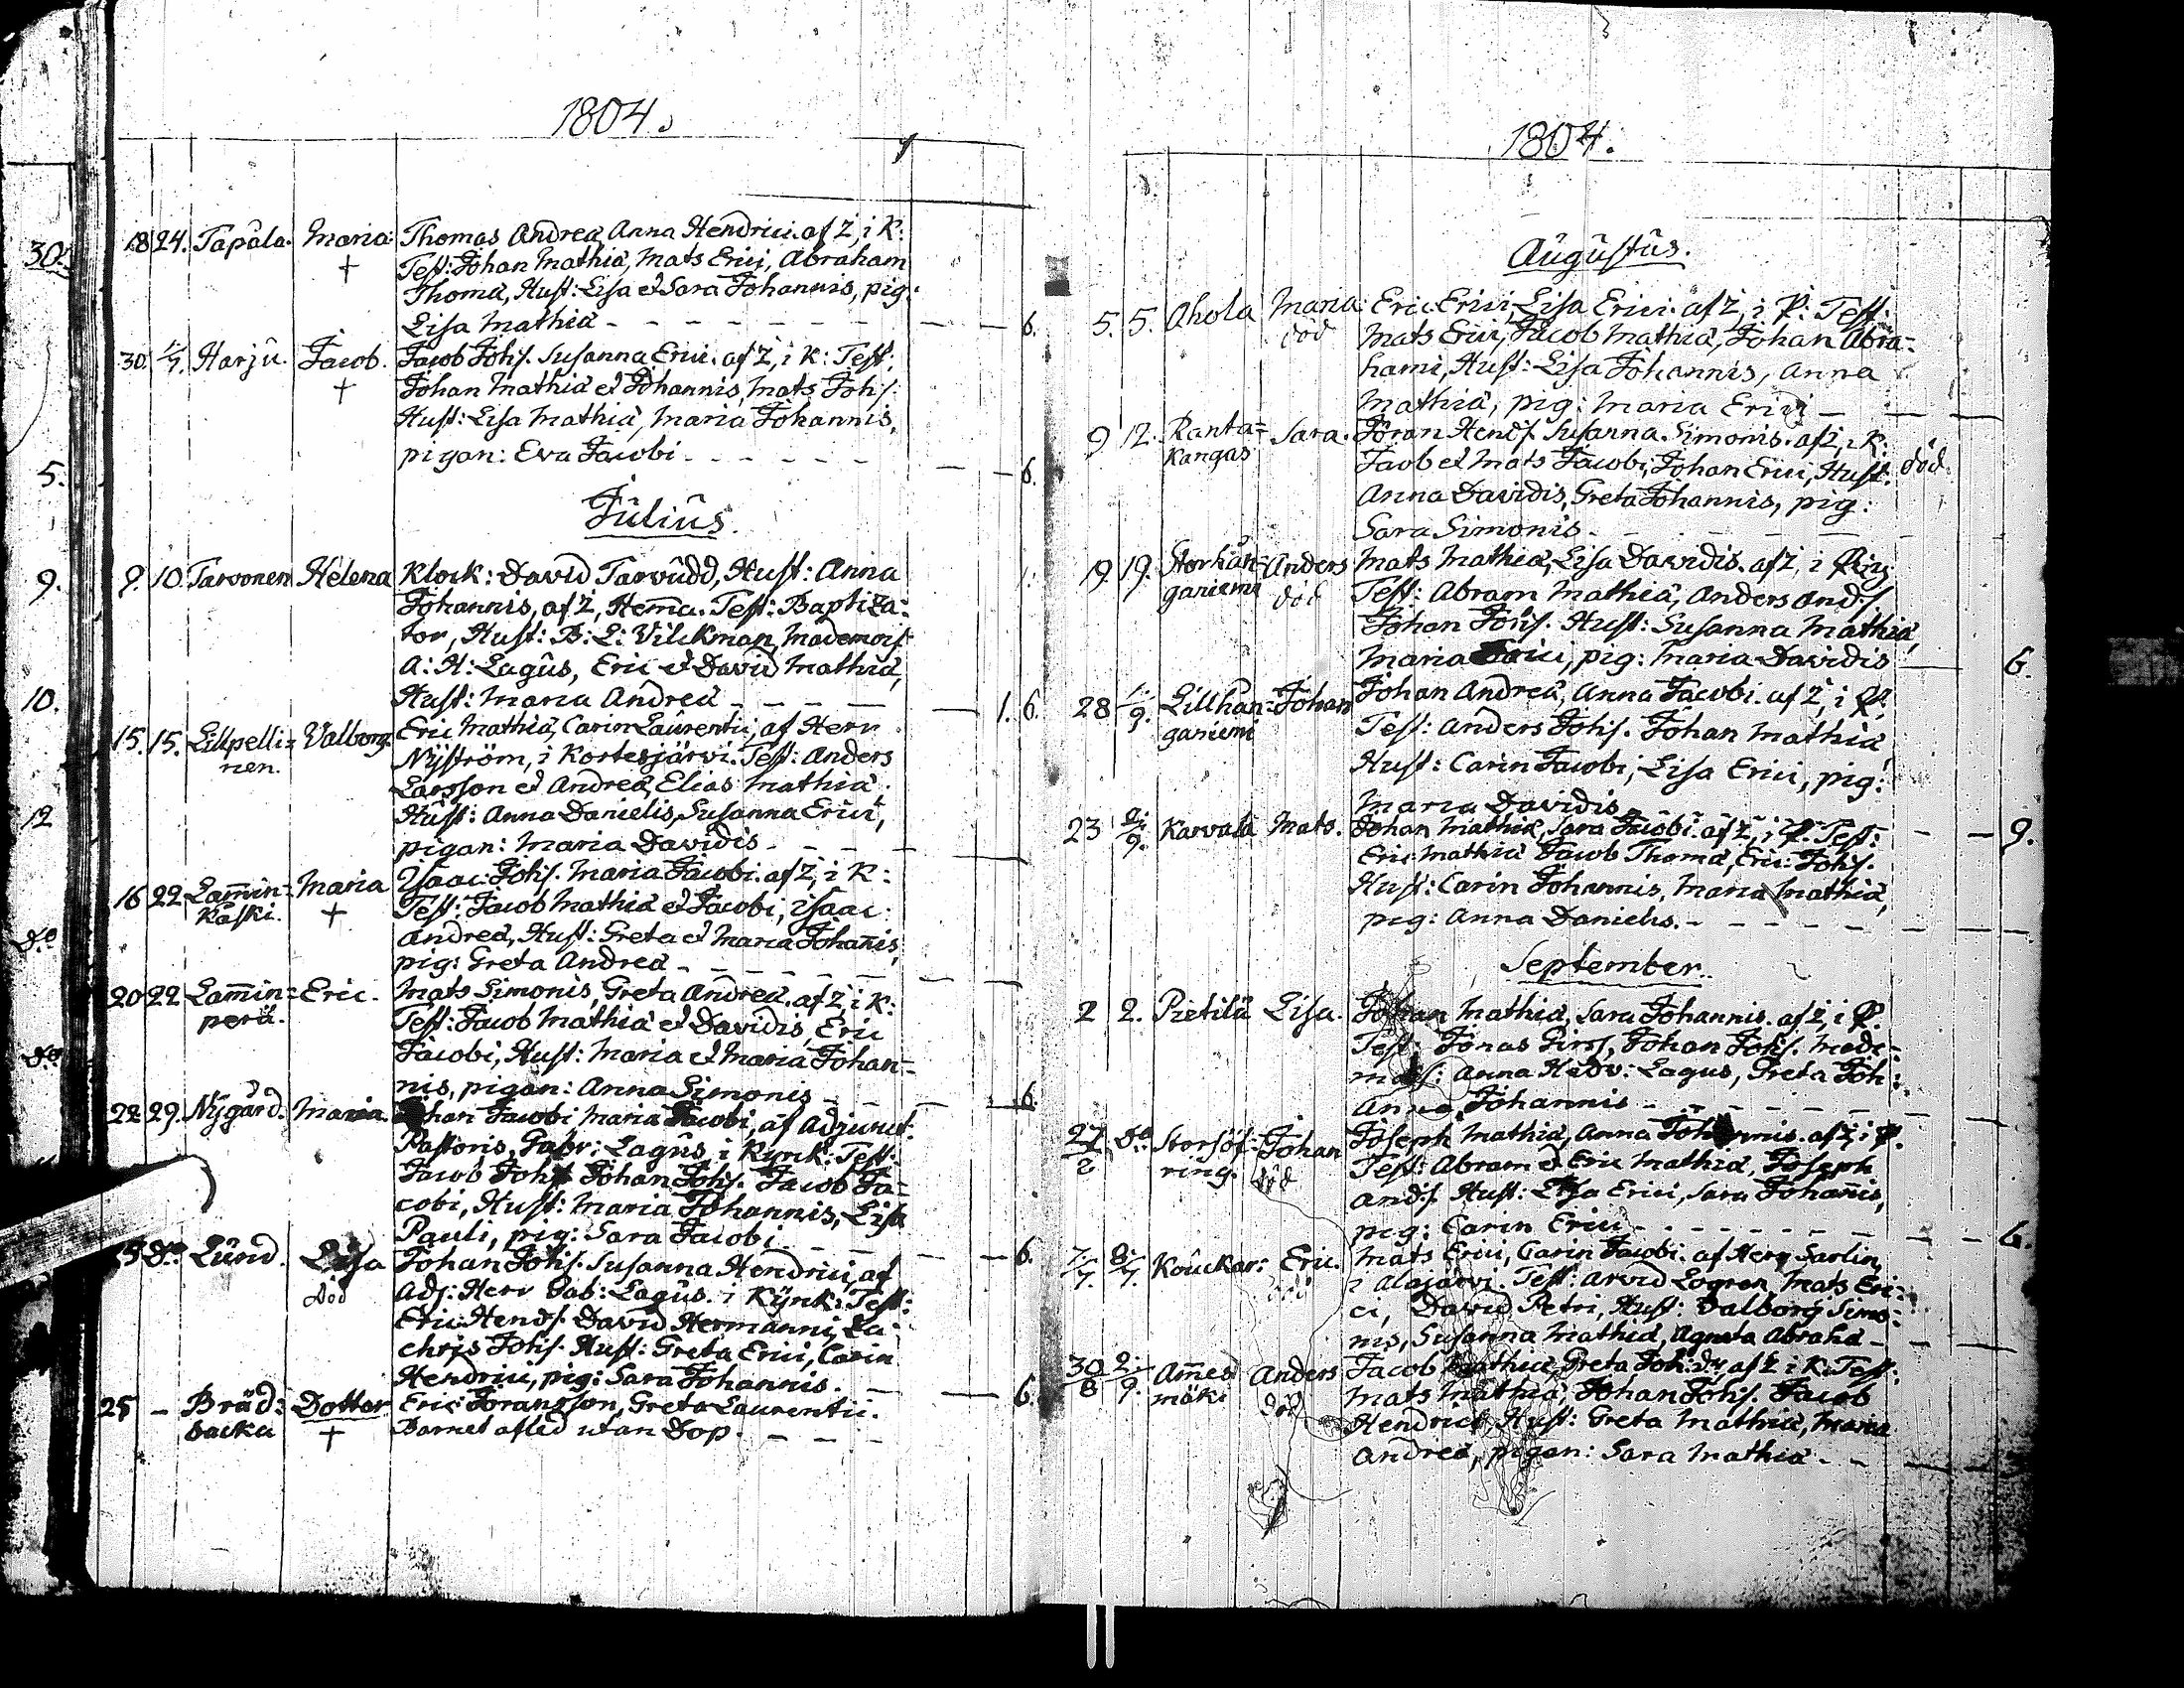 1804.
30.
18 24. Tapala. Maria: Thomas Andreæ, Anna Hendrici. af Z, i K:
† Test: Johan Mathiæ, Mats Erici, Abraham
Thomæ, Hust: Lisa et Sara Johannis, pig:
Lisa Mathiæ - - - 6.
30. 1/7. Harju. Jacob. Jacob Johs. Susanna Erici. af Z, i K: Test:
† Johan Mathiæ et Johannis, Mats Johs.
Hust: Lisa Mathiæ, Maria Johannis,
5.
pigan: Eva Jacobi - - - 6.
Julius.
9.
9. 10. Tarvonen Helena Klock: David Tarvudd, Hust: Anna
Johannis, af Z, Hema. Test: Baptiza=
tor, Hust: B: L: Vilckman, Mademois
A: H: Lagus, Eric et David Mathiæ,
10.
Hust: Maria Andreæ - - - 1. 6.
15. 15. Lillpelli= Valborg. Eric Mathiæ, Carin Laurentii, af Herr
nen. Nyström, i Kortesjärvi. Test: Anders
Larsson et Andreæ, Elias Mathiæ
12
Hust: Anna Danielis, Susanna Erici,
pigan: Maria Davidis - - -
16 22 Lamin= Maria Isaac Johs. Maria Jacobi. af Z, i K:
koski. † Test: Jacob Mathiæ et Jacobi, Isaac
Do
Andreæ, Hust: Greta et Maria Johanis,
pig: Greta Andreæ - - -
20 22 Lamin= Eric. Mats Simonis, Greta Andreæ. af Z, i K:
perä. Test: Jacob Mathiæ et Davidis, Eric
Do
Jacobi, Hust: Maria et Maria Johan=
nis, pigan: Anna Simonis - - - 6.
22 29. Nygård. Maria. Johan Jacobi, Maria Jacobi, af Adjunct.
Pastoris, Gabr: Lagus i Kyrck: Test:
Jacob Johs. Johan Johs. Jacob Ja=
cobi, Hust: Maria Johannis, Lisa
Pauli, pig: Sara Jacobi - - - 6.
25 Do Lund. Lisa Johan Johs. Susanna Hendrici, af
död Adj: Herr Gab: Lagus. i Kyrck: Test:
Eric Hends. David Hermanni, Za=
chris Johs. Hust: Greta Erici, Carin
Hendrici, pig: Sara Johannis. - - - 6.
25 - Bräd= Dotter Eric Göransson, Greta Laurentii.
backa † Barnet afled utan Dop. - - -
1804.
Augustus.
5. 5. Ahola Maria: Eric Erici, Lisa Erici. af Z, i P: Test:
död Mats Erici, Jacob Mathiæ, Johan Abra=
hami, Hust: Lisa Johannis, Anna
Mathiæ, pig: Maria Erici - - -
9 12. Ranta= Sara. Göran Hends. Susanna Simonis. af Z, i K:
kangas Jacob et Mats Jacobi, Johan Erici, Hust: död
Anna Davidis, Greta Johannis, pig:
Sara Simonis - - -
19. 19. Storkan= Anders Mats Mathiæ, Lisa Davidis. af Z, i
ganiemi död Test: Abram Mathiæ, Anders Ands.
Johan Johs. Hust: Susanna Mathiæ,
Maria Erici, pig: Maria Davidis - 6.
28 1/9. Lillkan= Johan Johan Andreæ, Anna Jacobi. af Z, i P.
ganiemi Test: Anders Johs. Johan Mathiæ
Hust: Carin Jacobi, Lisa Erici, pig:
Maria Davidis - - - 9.
23 2/9. Karvala Mats. Johan Mathiæ, Sara Jacobi. af Z, i P. Test:
Eric Mathiæ Jacob Thomæ, Eric Johs.
Hust: Carin Johannis, Maria Mathiæ,
pig: Anna Danielis. - - -
September.
2 2. Pietilä Lisa. Johan Mathiæ, Sara Johannis. af Z, i P.
Test: Jonas Girs, Johan Johs. Made=
mois: Anna Hedv: Lagus, Greta Joh:
Anna Johannis - - -
27/8 Do: Storsöf= Johan Joseph Mathiæ, Anna Johannis. af Z, i P.
ring. död Test: Abram et Eric Mathiæ, Joseph
Ands. Hust: Lisa Erici, Sara Johanis,
pig: Carin Erici - - - 6.
7/7. 8/7. Kouckar: Eric. Mats Erici, Carin Jacobi. af Herr Sarlin,
död i Alajärvi. Test: Arvid Logren, Mats Eri=
ci, David Petri, Hust: Valborg Simo=
nis, Susanna Mathiæ, Agneta Abrahæ -
30/8 2/9. Ames Anders Jacob Mathiæ, Greta Joh: Dr. af Z i K: Test:
mäki död Mats Mathiæ, Johan Johs. Jacob
Hendrici, Hust: Greta Mathiæ, Maria
Andreæ, pigan: Sara Mathiæ - -